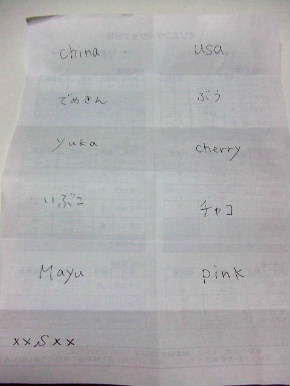 china
usa
でめきん
ぶう
yuka
cherry
いぶこ
チャコ
Mayu
pink
xxSxx